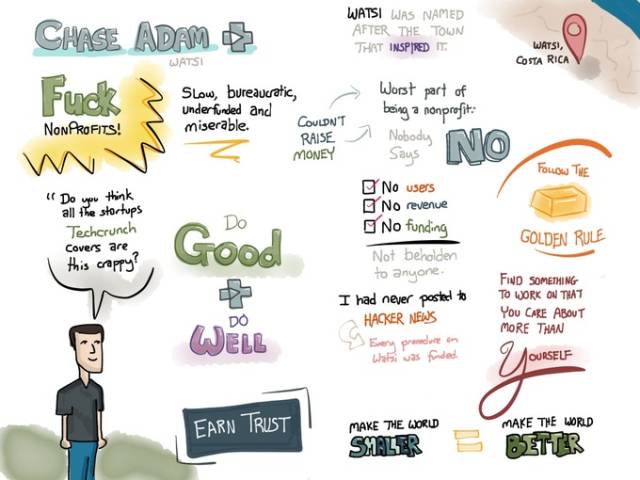 CHASE ADAM
WATSI
Fuck
NONPROFITS!
Slow, bureaucratic,
underfunded and
miserable.
"Do you think
all the startups
Techcrunch
covers are
this crappy?
DO
Good
DO
WELL
EARN TRUST
WATSI WAS NAMED
AFTER THE TOWN
THAT INSPIRED IT.
WATSI,
COSTA RICA
COULDN'T
RAISE
MONEY
Worst part of
being a nonprofit:
Nobody
Says
NO
No users
No revenue
No funding
Not beholden
to anyone.
I had never posted to
HACKER NEWS
Every procedure on
Watsi was funded.
FOLLOW THE
GOLDEN RULE
FIND SOMETHING
TO WORK ON THAT
YOU CARE ABOUT
MORE THAN
YOURSELF
MAKE THE WORLD
SMALLER
=
MAKE THE WORLD
BETTER